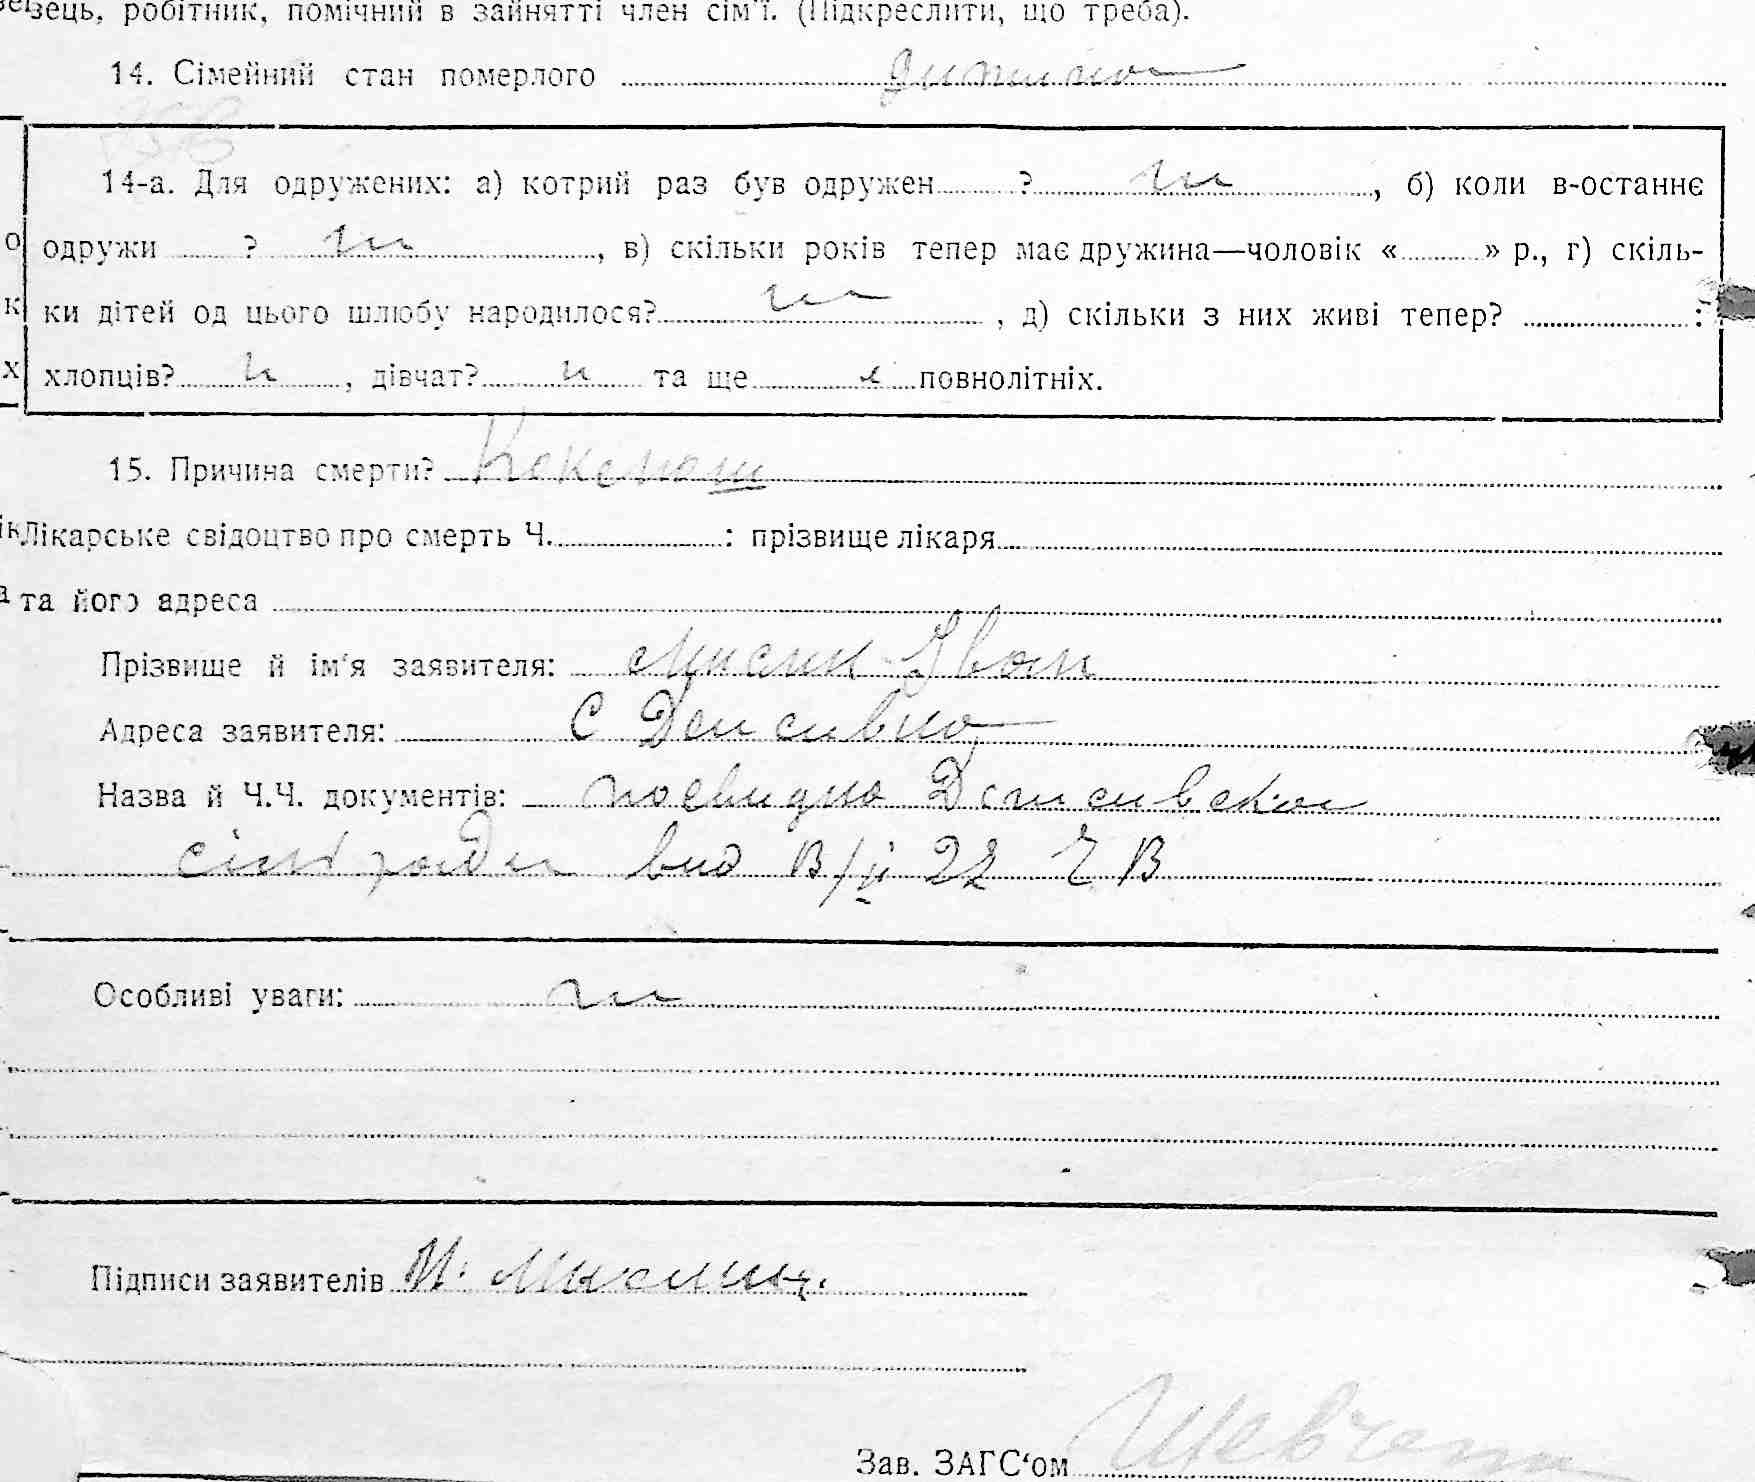 зець, робітник, помічний в зайнятті член сім'ї. (Підкреслити, що треба).
14. Сімейний стан померлого дитина
14-а. Для одружених: а) котрий раз був одружен ? , б) коли в-останнє
одружи ? , в) скільки років тепер має дружина—чоловік « » р., г) скіль-
ки дітей од цього шлюбу народилося? , д) скільки з них живі тепер? :
хлопців? н , дівчат? н та ще повнолітніх.
15. Причина смерти? Коклюш
Лікарське свідоцтво про смерть Ч. : прізвище лікаря
та його адреса
Прізвище й ім'я заявителя: Іван
Адреса заявителя: с
Назва й Ч.Ч. документів: посвидка
сільради вид 22
Особливі уваги:
Підписи заявителів И.
Зав. ЗАГС'ом